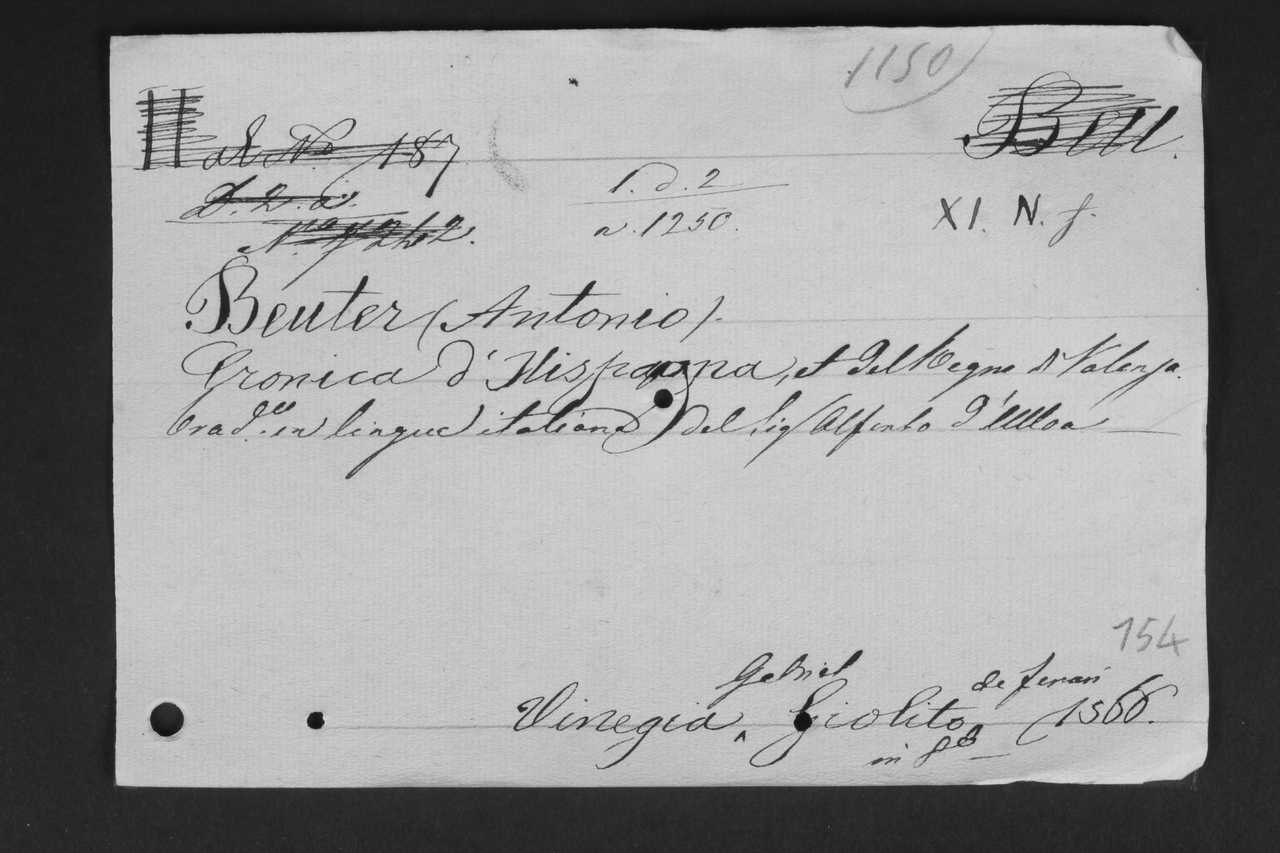 1150
187
Beu.
1. d. 2
a. 1250.
XI. N. f.
Beuter (Antonio).
Cronica d'Hispagna, et del Regno di Valenza.
trad.ta in lingua italiana del Sig Alfonso d'Ulloa
154
Gabriel de ferrari
Vinegia, Giolito 1566.
in 8º